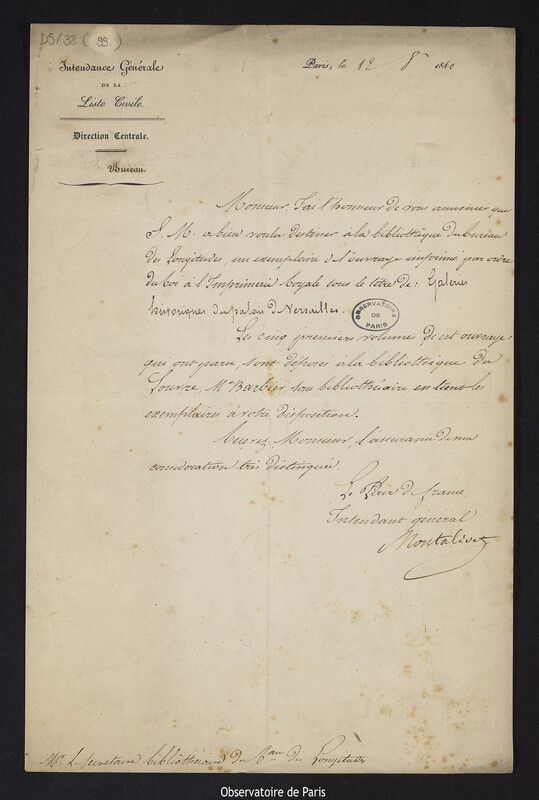 D5/38 (99.)
Intendance Générale
DE LA
Liste Civile.
Direction Centrale.
Bureau.
Paris, le 12 8bre 1840
Monsieur, J'ai l'honneur de vous annoncer que
S. M. a bien voulu destiner à la bibliothèque du bureau
des Longitudes, un exemplaire de l'ouvrage imprimé par ordre
du Roi à l'Imprimerie Royale sous le titre de: Galeries
historiques du palais de Versailles.
OBSERVATOIRE
DE
PARIS
Les cinq premiers volumes de cet ouvrage
qui ont paru, sont déposés à la bibliothèque du
Louvre. Mr Barbier, son bibliothécaire, en tient les
exemplaires à votre disposition.
Agréez, Monsieur, l'assurance de ma
considération très distinguée.
Le Pair de france,
Intendant général
Montalivet
Mr le Secrétaire bibliothécaire du Bau des Longitudes
Observatoire de Paris